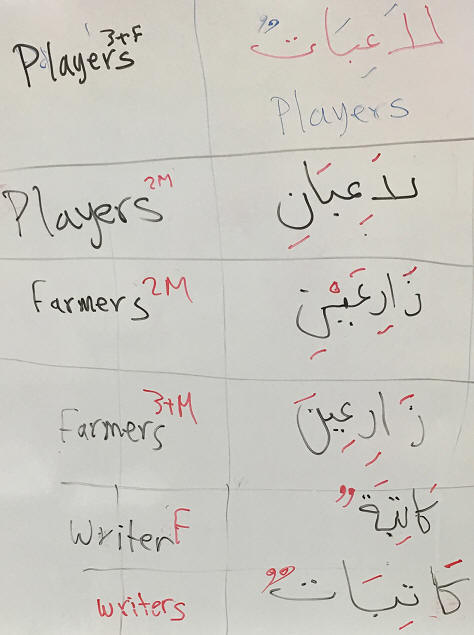 Players 3+F لاَعِبَاتٌ
Players
Players 2M لاَعِبَانِ
Farmers 2M زَارِعَيْنِ
Farmers 3+M زَارِعِينَ
Writer F كَاتِبَةٌ
writers كَاتِبَاتٌ